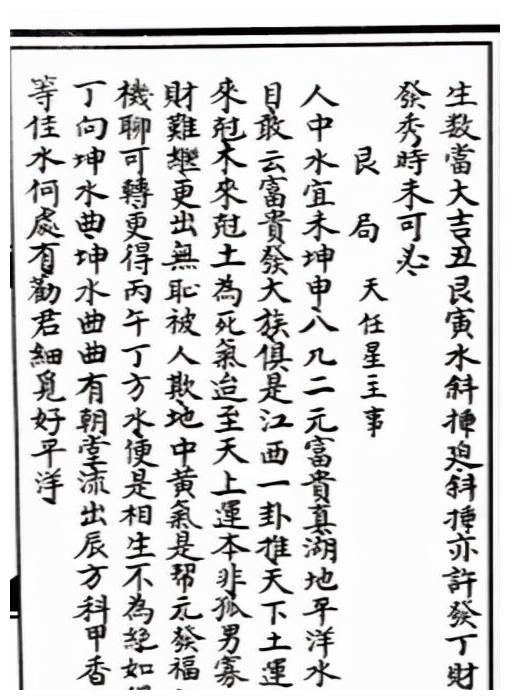 生数當大吉丑艮寅水斜揷廹斜揷亦許發丁財
發秀時未可必
艮局 天任星主事
人中水宜未坤申八凡二元富貴真湖地平洋水
目敢云富貴發大族俱是江西一卦推天下土運
來尅木來尅土為死氣迨至天上運本非孤男寡
財難繼更出無恥被人欺地中黃氣是帮元發福
機聊可轉更得丙午丁方水便是相生不為絕如
丁向坤水曲坤水曲曲有朝堂流出辰方科甲香
等佳水何處有勸君細覓好平洋